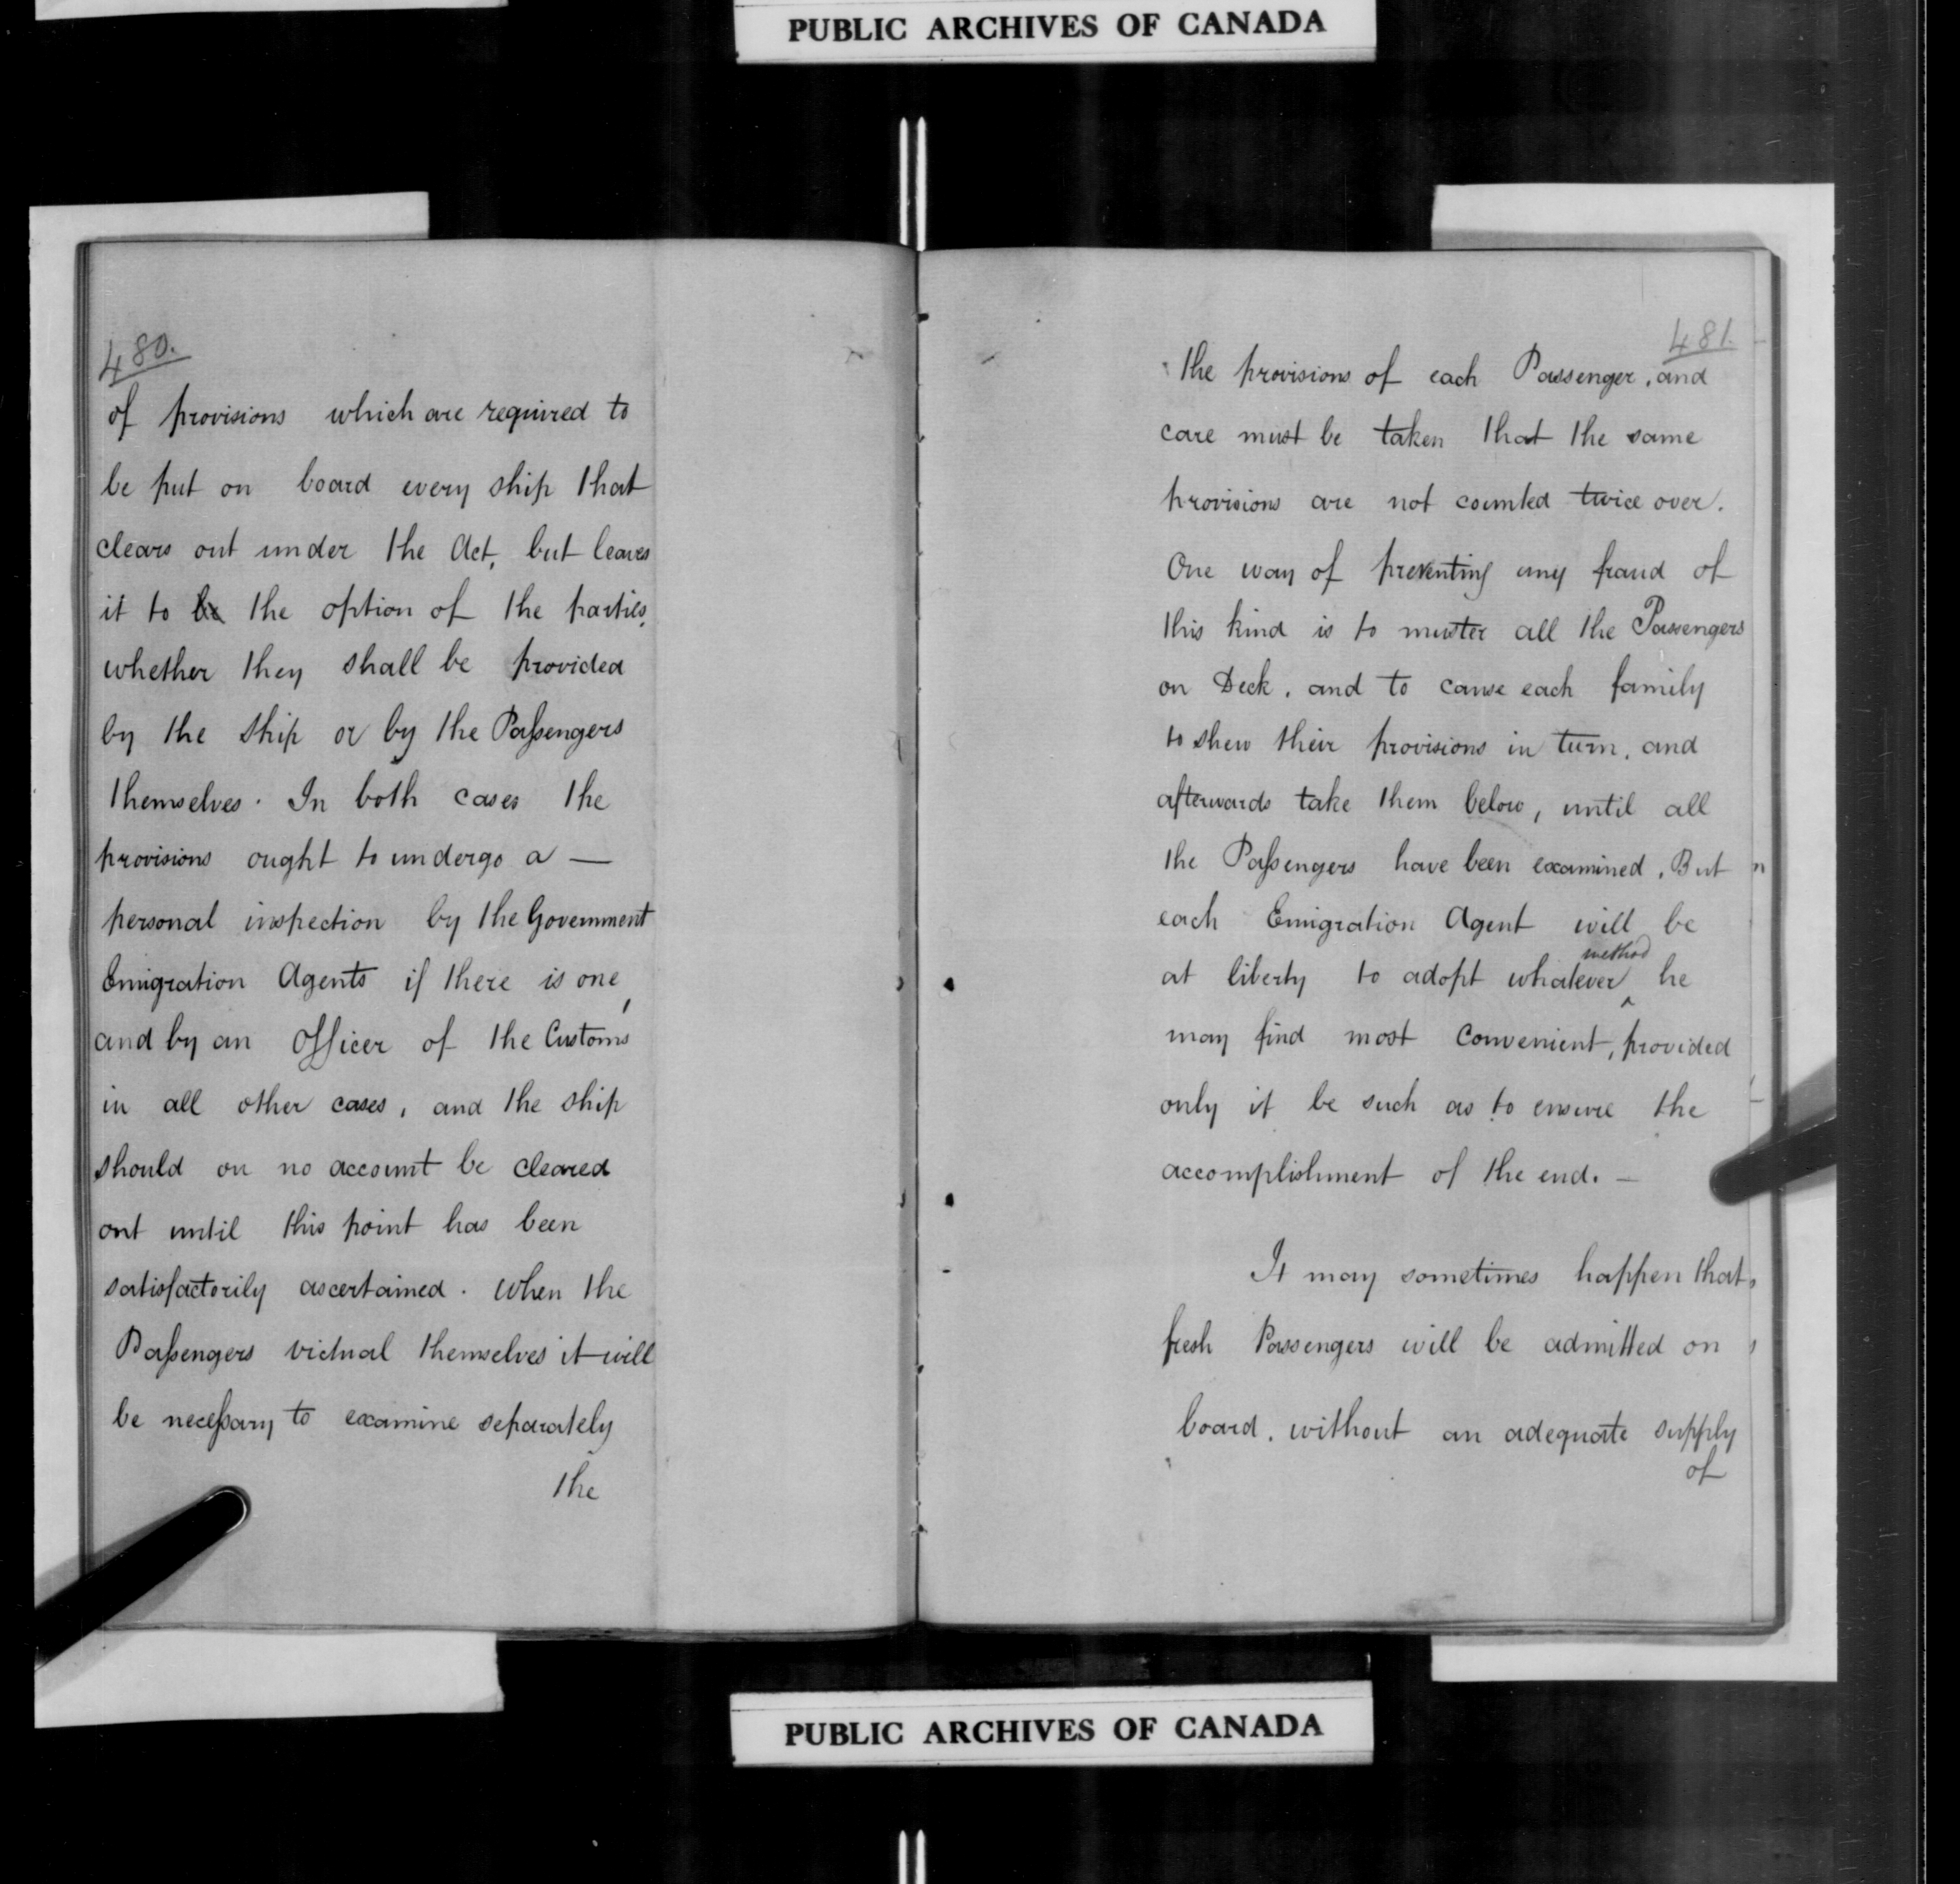 PUBLIC ARCHIVES OF CANADA
480.
of provisions which are required to
be put on board every ship that
clears out under the Act, but leaves
it to be the option of the parties,
whether they shall be provided
by the ship or by the Paſsengers
themselves. In both cases the
provisions ought to undergo a —
personal inspection by the Government
Emigration Agents if there is one,
and by an Officer of the Customs
in all other cases, and the ship
should on no account be cleared
out until this point has been
satisfactorily ascertained. When the
Paſsengers victual themselves it will
be neceſsary to examine separately
the
481.
the provisions of each Passenger, and
care must be taken that the same
provisions are not counted twice over.
One way of preventing any fraud of
this kind is to muster all the Passengers
on Deck, and to cause each family
to shew their provisions in turn, and
afterwards take them below, until all
the Paſsengers have been examined. But
each Emigration Agent will be
method
at liberty to adopt whatever ^ he
may find most convenient, provided
only it be such as to ensure the
accomplishment of the end. —
It may sometimes happen that
fresh Passengers will be admitted on
board, without an adequate supply
of
PUBLIC ARCHIVES OF CANADA